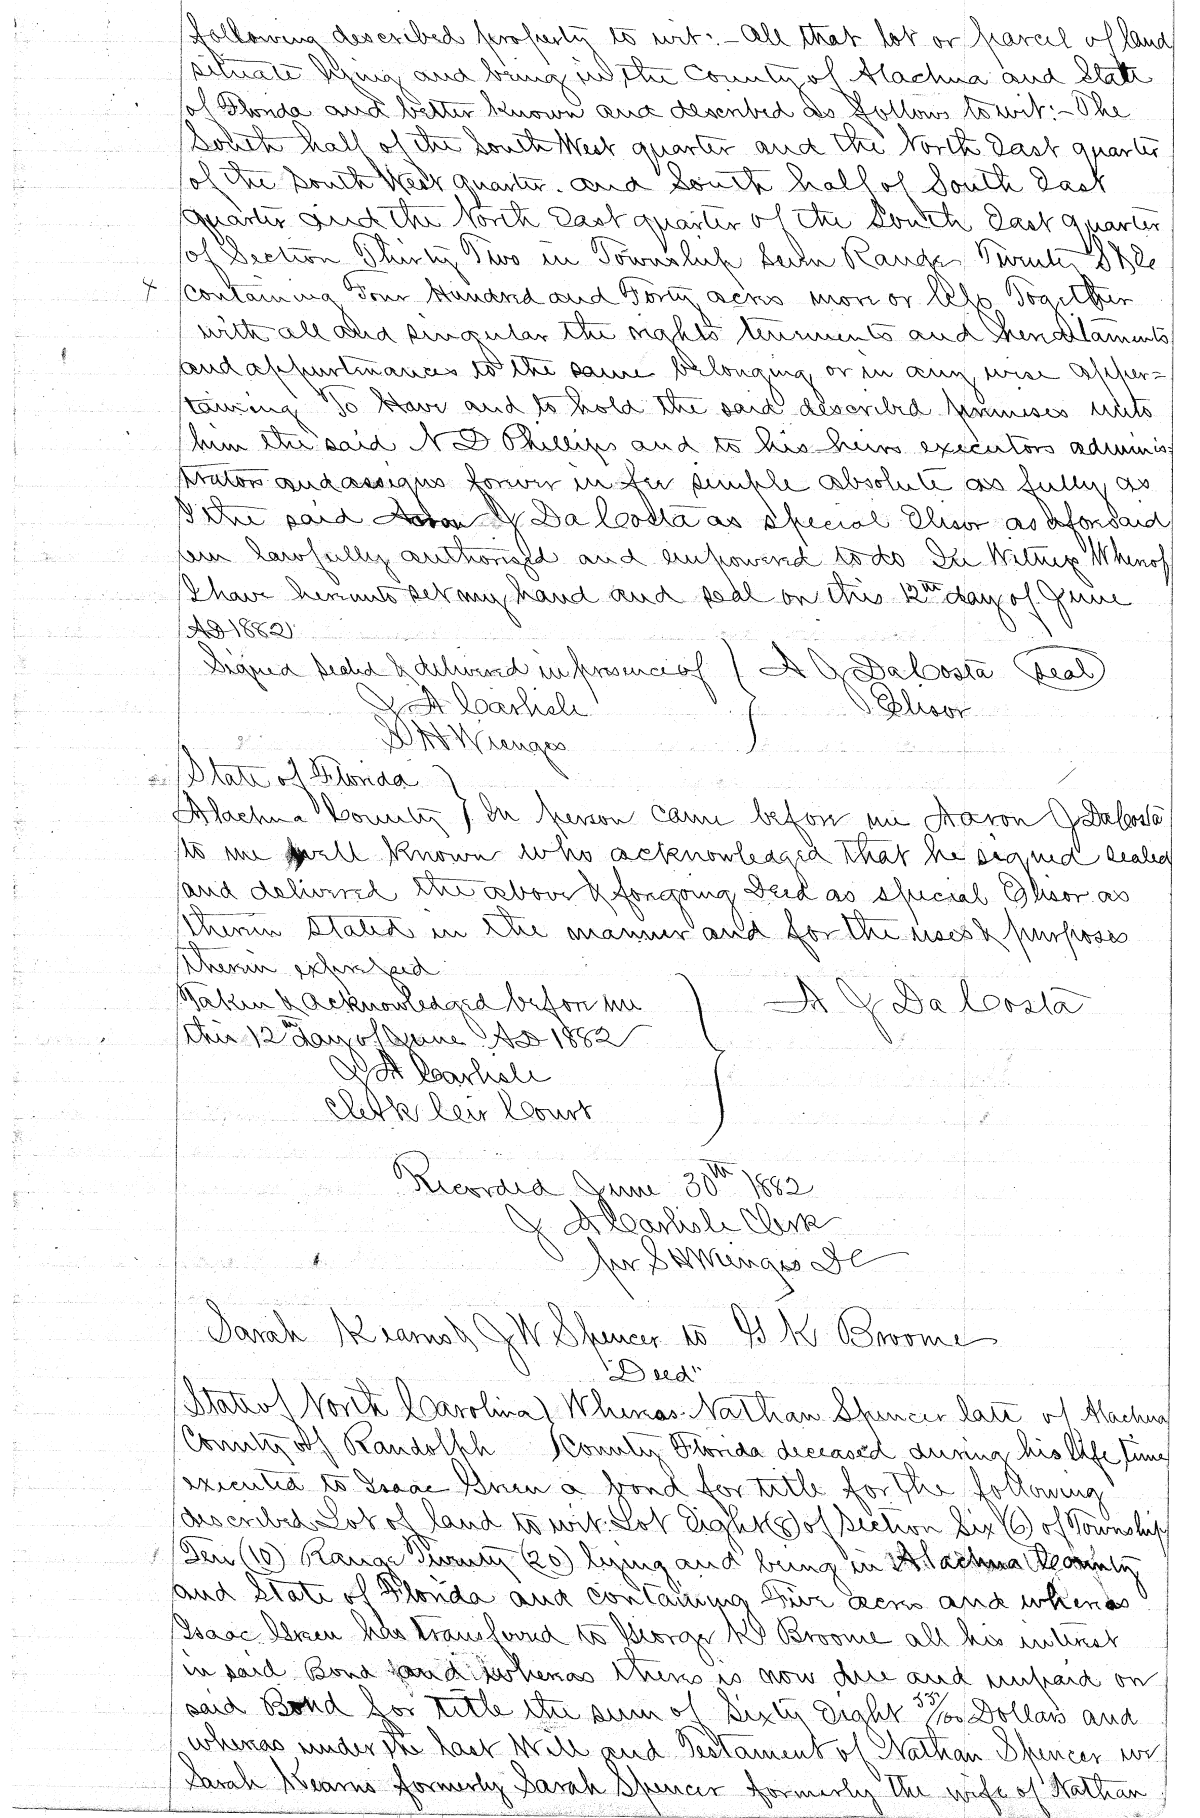 following described property to wit:- All that lot or parcel of land
situate lying and being in the County of Alachua and State
of Florida and better known and described as follows to wit:- The
South half of the South West quarter and the North East quarter
of the South West quarter. and South half of South East
quarter and the North East quarter of the South East quarter
of Section Thirty Two in Township Seven Range Twenty S & E
containing Four Hundred and Forty acres more or less Together
with all and singular the rights tenements and hereditaments
and appurtenances to the same belonging or in any wise apper=
taining To Have and to hold the said described premises unto
him the said N D Phillips and to his heirs executors adminis-
trators and assigns forever in fee simple absolute as fully as
I the said Aaron J Da Costa as special Elisor as aforesaid
am lawfully authorized and empowered to do In Witness Whereof
I have hereunto set my hand and seal on this 12th day of June
AD 1882
Signed sealed & delivered in presence of } A J DaCosta (seal)
J A Carlisle } Elisor
S H Wienges
State of Florida }
Alachua County } In person came before me Aaron J DaCosta
to me well known who acknowledged that he signed sealed
and delivered the above & foregoing Deed as special Elisor as
therein stated in the manner and for the uses & purposes
therein expressed
Taken & acknowledged before me } A J Da Costa
this 12th day of June AD 1882
J A Carlisle
Clerk Cir Court
Recorded June 30th 1882
J A Carlisle Clerk
per S H Wienges DC
Sarah Kearns & J W Spencer to G K Broome
"Deed"
State of North Carolina } Whereas Nathan Spencer late of Alachua
County of Randolph } County Florida deceased during his life time
executed to Isaac Green a bond for title for the following
described Lot of land to wit: Lot Eight (8) of Section Six (6) of Township
Ten (10) Range Twenty (20) lying and being in Alachua County
and State of Florida and containing Five acres and whereas
Isaac Green has transferred to George K Broome all his interest
in said Bond and whereas there is now due and unpaid on
said Bond for title the sum of Sixty Eight 33/100 Dollars and
whereas under the last Will and Testament of Nathan Spencer we
Sarah Kearns formerly Sarah Spencer formerly the wife of Nathan